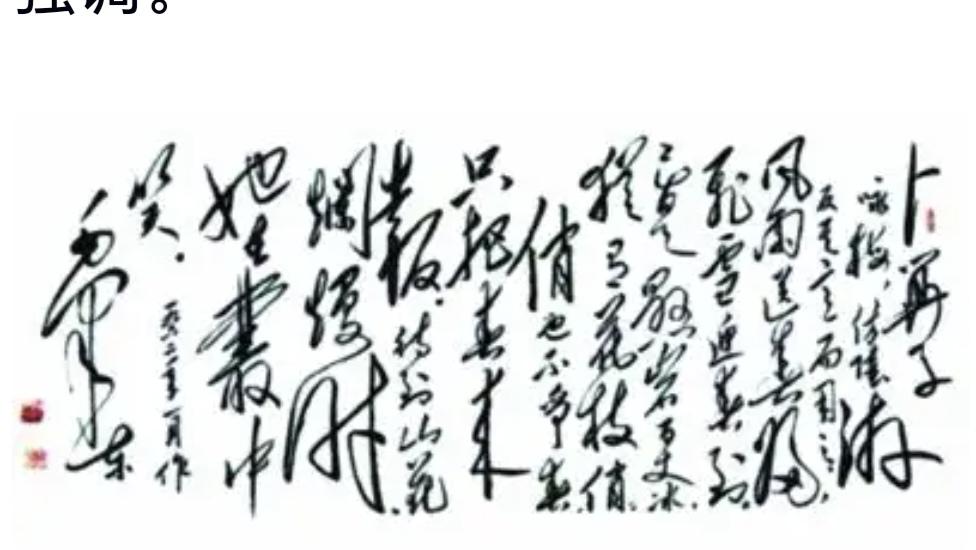 强调。
卜算子
咏梅，陆游
反其意而用之。
风雨送春归，
飛雪迎春到。
已是懸崖百丈冰，
犹有花枝俏。
俏也不争春，
只把春来
報。待到山花
爛熳时，
她在叢中
笑。
一九六二年一月作
毛泽东